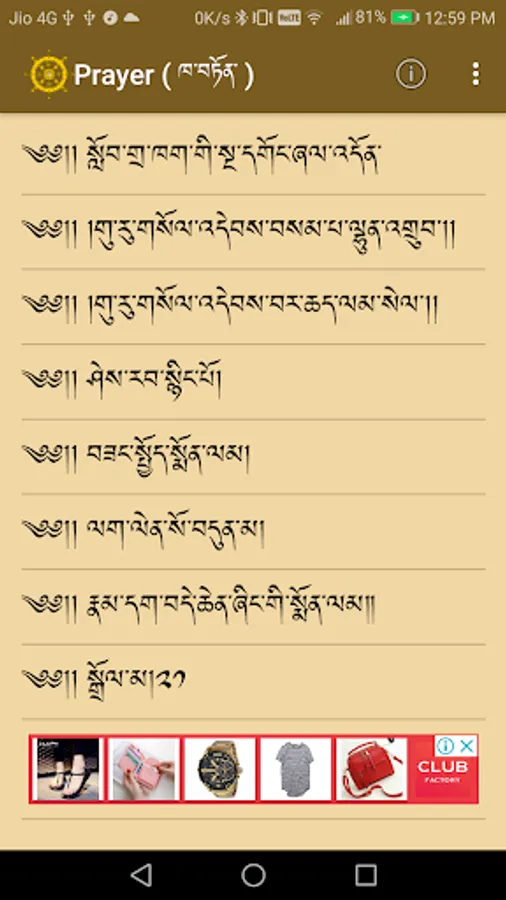 Jio 4G 0K/s VoLTE 81% 12:59 PM
Prayer ( ཁ་བཏོན་ )
༄༅།། སློབ་གྲྭ་ཁག་གི་སྔ་དགོང་ཞལ་འདོན་
༄༅།། །གུ་རུ་གསོལ་འདེབས་བསམ་པ་ལྷུན་འགྲུབ་།།
༄༅།། །གུ་རུ་གསོལ་འདེབས་བར་ཆད་ལམ་སེལ་།།
༄༅།། ཤེས་རབ་སྙིང་པོ།
༄༅།། བཟང་སྤྱོད་སྨོན་ལམ།
༄༅།། ལག་ལེན་སོ་བདུན་མ།
༄༅།། རྣམ་དག་བདེ་ཆེན་ཞིང་གི་སྨོན་ལམ།།
༄༅།། སྒྲོལ་མ།༢༡
CLUB
FACTORY